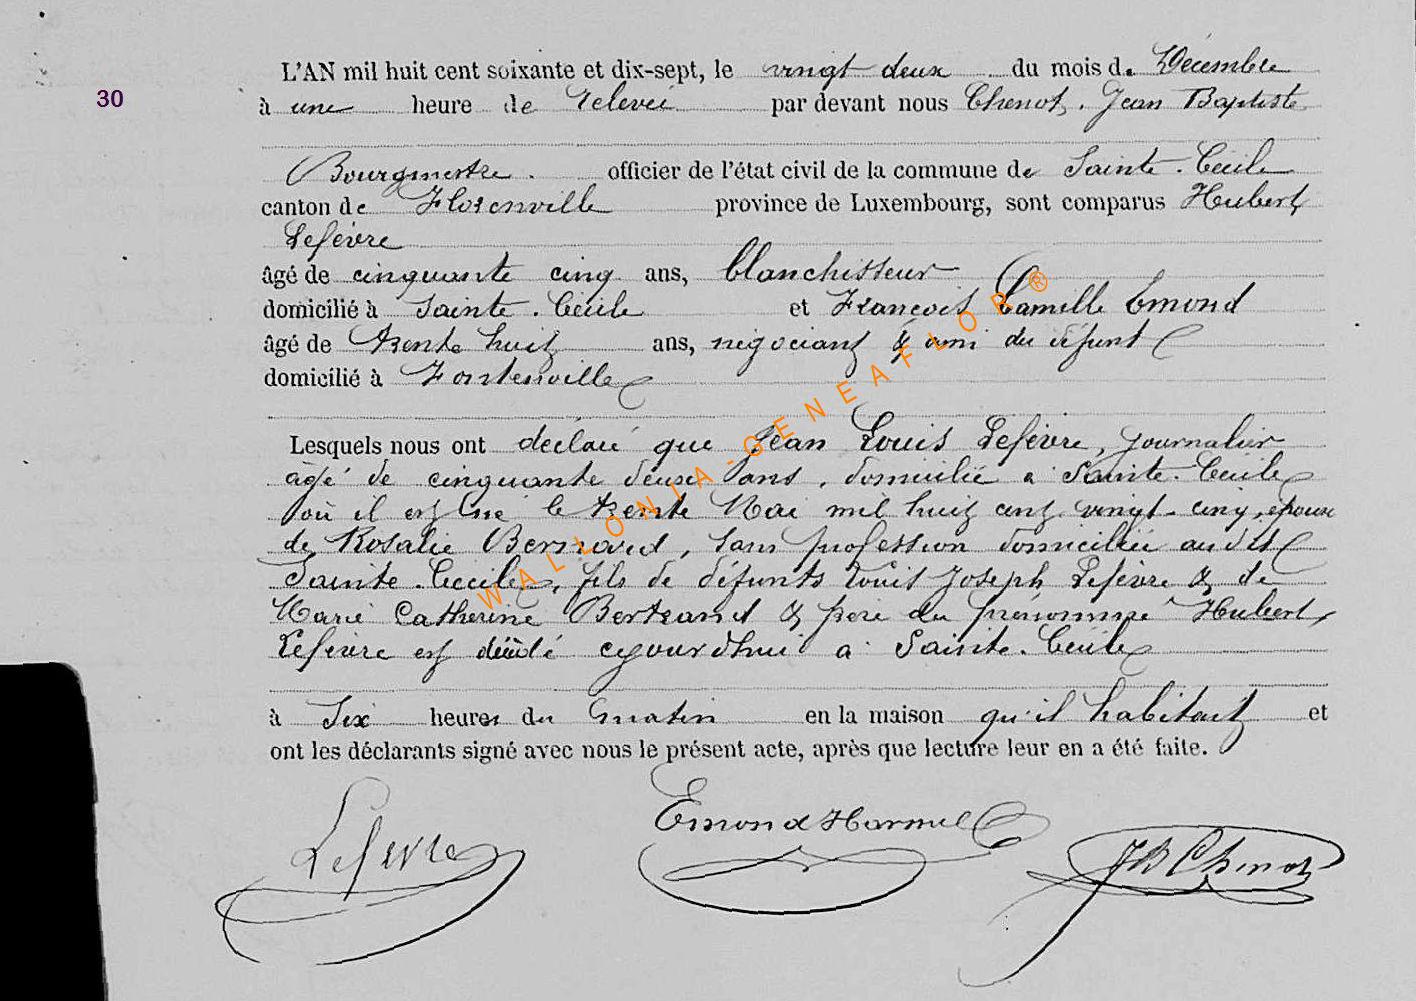 30
L'AN mil huit cent soixante et dix-sept, le vingt deux du mois de Décembre
à une heure de relevée par devant nous Chenot, Jean Baptiste
Bourgmestre officier de l'état civil de la commune de Sainte-Cécile
canton de Florenville province de Luxembourg, sont comparus Hubert
Lefèvre
âgé de cinquante cinq ans, blanchisseur
domicilié à Sainte-Cécile et François Camille Emond
âgé de trente huit ans, négociant & ami du défunt
domicilié à Fontenoille
Lesquels nous ont déclaré que Jean Louis Lefèvre, journalier
âgé de cinquante deux ans, domicilié à Sainte-Cécile
où il est né le trente Mai mil huit cent vingt-cinq, époux
de Rosalie Bernard, sans profession domiciliée au dit
Sainte-Cécile, fils de défunts Louis Joseph Lefèvre & de
Marie Catherine Bertrand & frère du prénommé Hubert
Lefèvre est décédé cejourd'hui à Sainte-Cécile
à six heures du matin en la maison qu'il habitait et
ont les déclarants signé avec nous le présent acte, après que lecture leur en a été faite.
Lefèvre
Emond Harmel
JB Chenot
WALLONIA-GENEAFLOR®